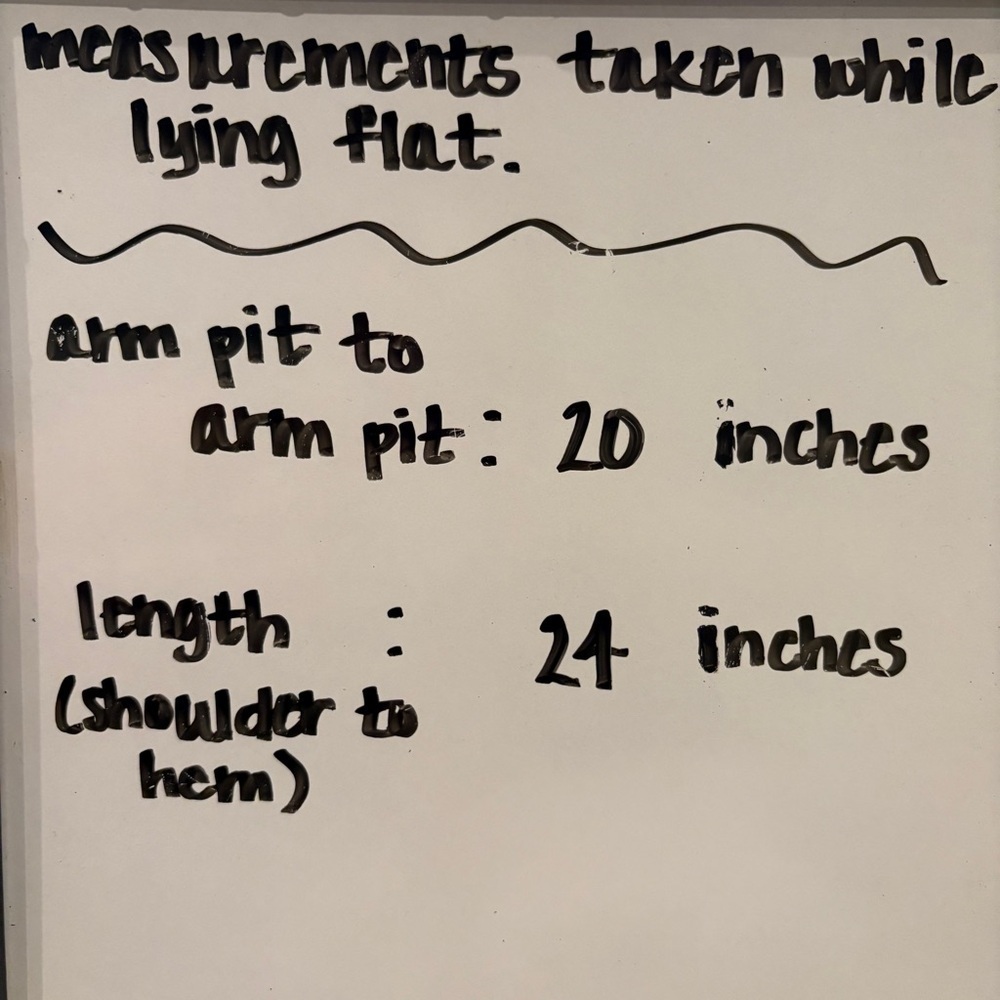 measurements taken while
lying flat.
arm pit to
arm pit: 20 inches
length : 24 inches
(shoulder to
hem)